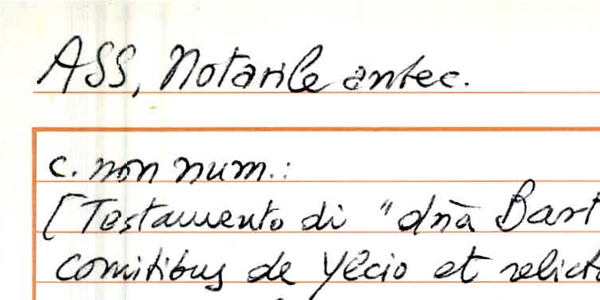 ASS, Notarile antec.
c. non num.:
[Testamento di "dña Bart
comitibus de Ylcio et relict